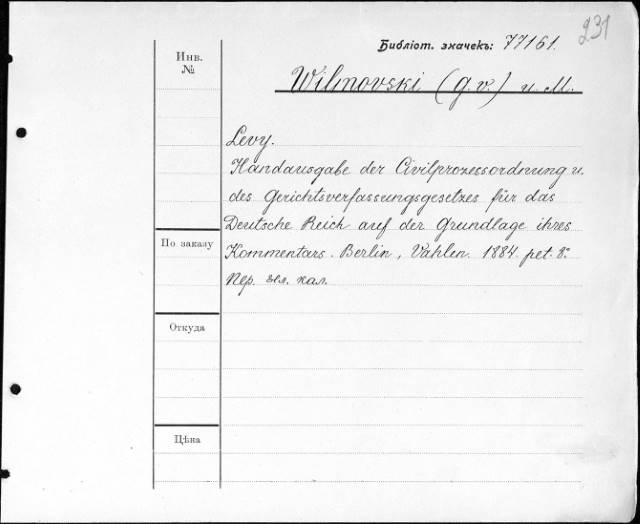 231
Библіот. значекъ: 77161.
Инв.
№
Wilmovski (G. v.) u. M.
Levy.
Handausgabe der Civilprozessordnung u.
des Gerichtsverfassungsgesetzes für das
Deutsche Reich auf der Grundlage ihres
По заказу
Kommentars. Berlin, Vahlen. 1884. pet. 8º
Пер. зел. кал.
Откуда
Цѣна